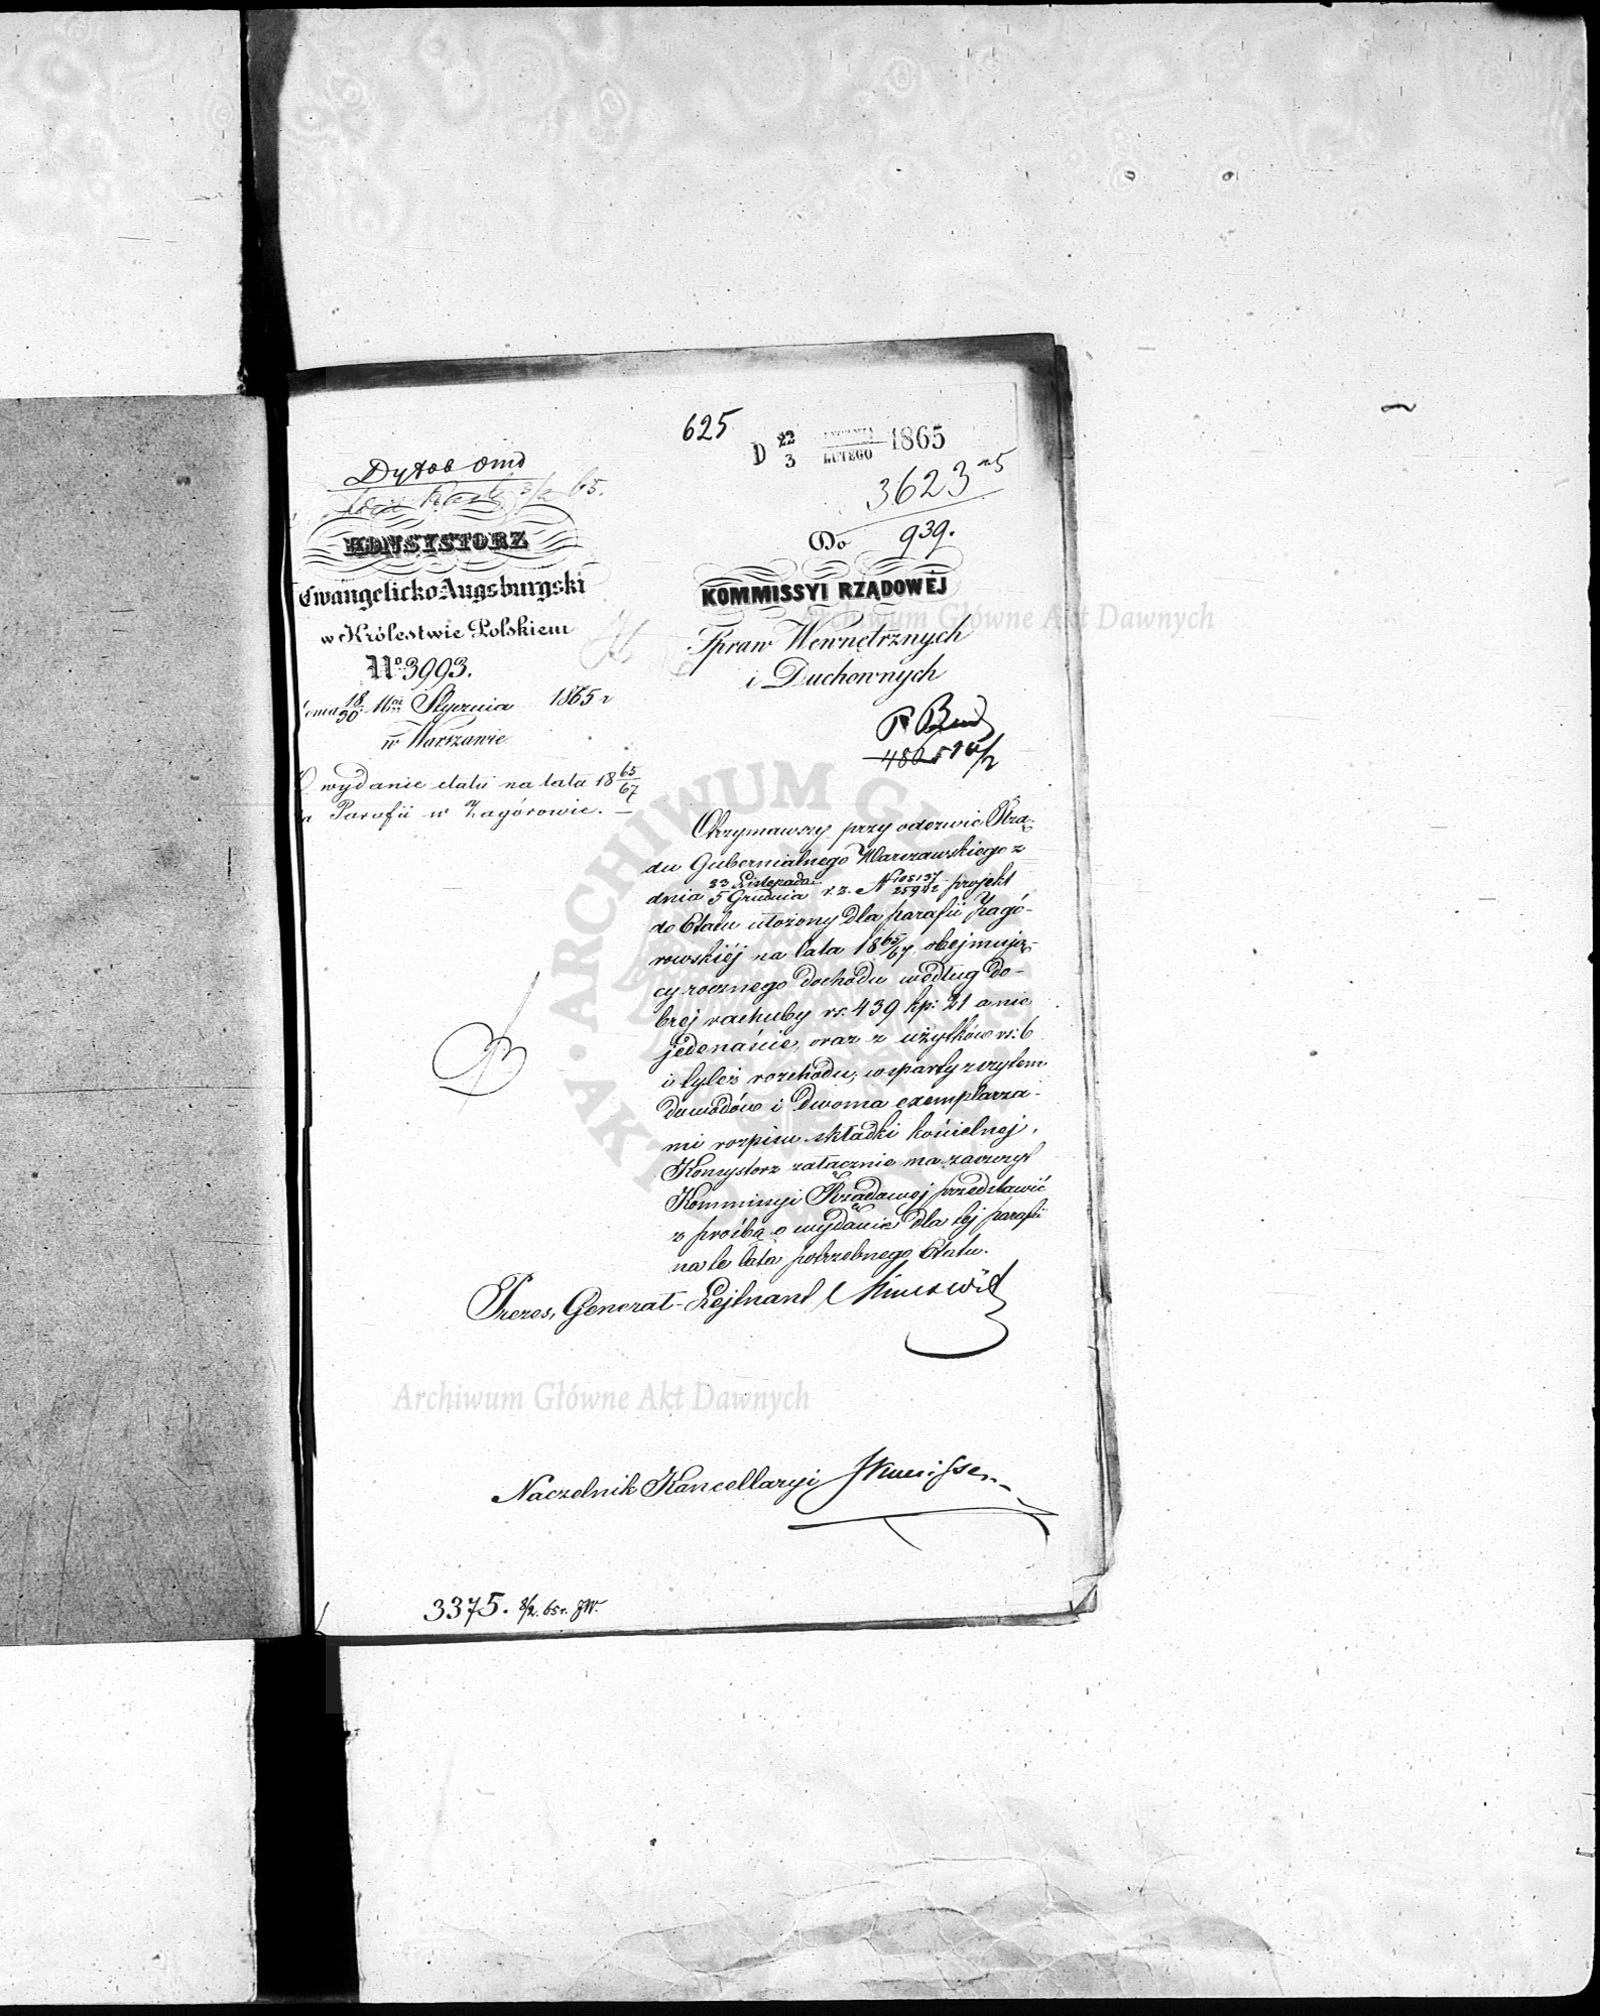 625
D 22 3 STYCZNIA LUTEGO 1865
3623
939.
3/2 65.
KONSYSTORZ
Ewangelicko Augsburgski
w Królestwie Polskiem
No 3993.
18/30 Mca Stycznia 1865 r
w Warszawie
O wydanie etatu na lata 18 65/67
Parafii w Zagórowie. —
Do
KOMMISSYI RZĄDOWÉJ
Spraw Wewnętrznych
i Duchownych
Otrzymawszy przy odezwie Rzą-
du Gubernialnego Warszawskiego z
dnia 23 Listopada 5 Grudnia r. z. N 108137 25902 projekt
do Etatu ułożony dla parafii Zagó-
rowskiéj na lata 18 65/67 obejmują-
cy rocznego dochodu według do-
brej rachuby rs. 439 kp: 21 a nie
jedenaście, oraz z użytków rs: 6
i tyleż rozchodu; wsparty zeszytem
dowodów i dwoma exemplarza-
mi rozpisu składki kościelnej,
Konsystorz załącznie ma zaszczyt
Kommissyi Rządowej przedstawić
z prośbą o wydanie dla tej parafii
na te lata potrzebnego Etatu.
Prezes, Generał-Lejtnant
Naczelnik Kancellaryi
3375. 3/2. 65 r. JW.
Archiwum Główne Akt Dawnych
Archiwum Główne Akt Dawnych